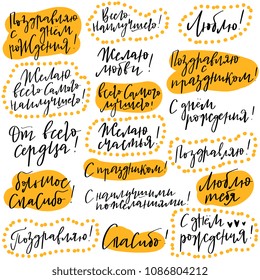 Поздравляю
с днём
рождения!
Всего
Наилучшего!
Люблю!
Желаю
всего Самого
Наилучшего!
Желаю
любви!
Поздравляю
с
праздником!
Всего Самого
лучшего!
С днём
рождения!
От всего
сердца!
Желаю
счастья!
Поздравляю!
С праздником!
большое
Спасибо!
С наилучшими
пожеланиями!
Люблю
тебя
Поздравляю!
Спасибо!
С днём
рождения!
shutterstock.com · 1086804212